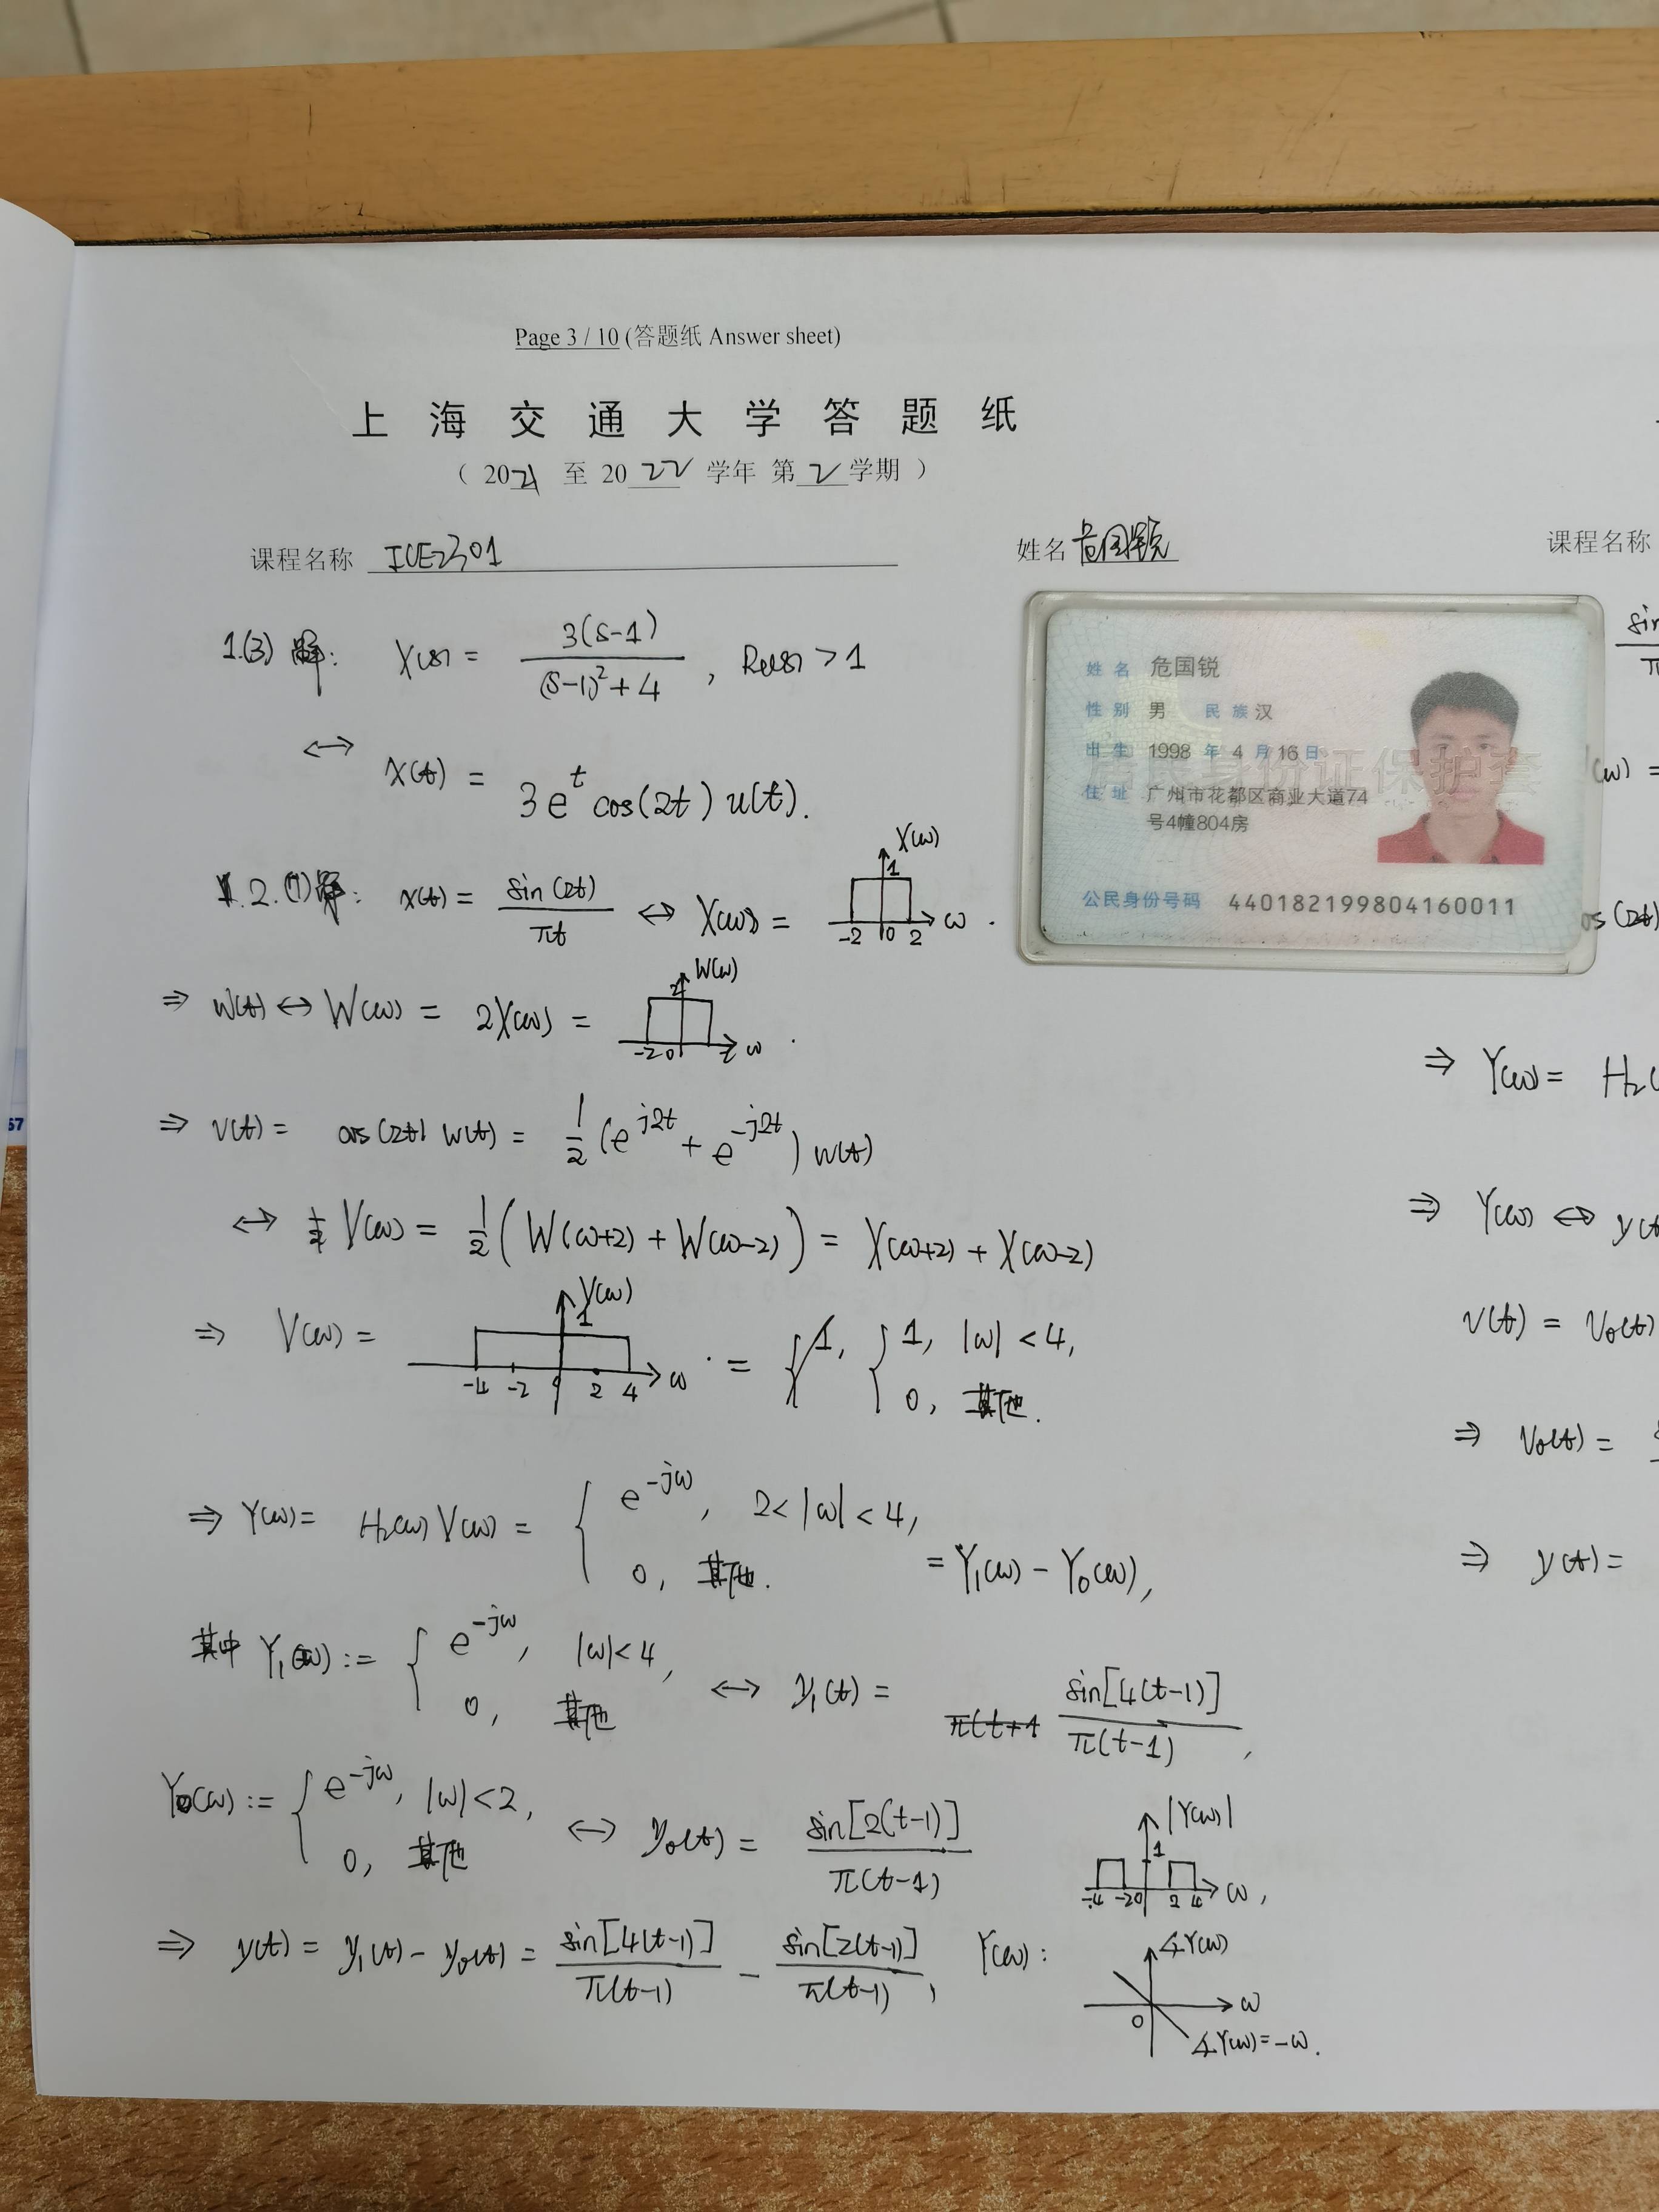 Page 3 / 10 (答题纸 Answer sheet)
上 海 交 通 大 学 答 题 纸
( 2021 至 2022 学年 第 2 学期 )
课程名称 ICE2301
姓名 危国锐
课程名称
姓 名 危国锐
性 别 男 民 族 汉
出 生 1998 年 4 月 16 日
住 址 广州市花都区商业大道74
号4幢804房
公民身份号码 440182199804160011
居民身份证保护套
1.(3) 解: X(s) = 3(s-1) / ((s-1)²+4) , Re(s) > 1
↔ x(t) = 3e^t cos(2t) u(t).
2.(1) 解: x(t) = sin(2t) / πt ↔ X(ω) =
X(ω) 1 -2 0 2 ω .
⇒ w(t) ↔ W(ω) = 2X(ω) =
W(ω) 2 -2 0 2 ω .
⇒ v(t) = cos(2t) w(t) = 1/2 (e^{j2t} + e^{-j2t}) w(t)
↔ V(ω) = 1/2 ( W(ω+2) + W(ω-2) ) = X(ω+2) + X(ω-2)
⇒ V(ω) =
V(ω) 1 -4 -2 0 2 4 ω . = { 1, |ω| < 4,
0, 其他.
⇒ Y(ω) = H₂(ω) V(ω) = { e^{-jω}, 2 < |ω| < 4,
0, 其他. = Y₁(ω) - Y₀(ω),
其中 Y₁(ω) := { e^{-jω}, |ω| < 4,
0, 其他 ↔ y₁(t) = sin[4(t-1)] / π(t-1) ,
Y₀(ω) := { e^{-jω}, |ω| < 2,
0, 其他 ↔ y₀(t) = sin[2(t-1)] / π(t-1)
⇒ y(t) = y₁(t) - y₀(t) = sin[4(t-1)] / π(t-1) - sin[2(t-1)] / π(t-1) , Y(ω) :
|Y(ω)| 1 -4 -2 0 2 4 ω ,
∡Y(ω) 0 ω
∡Y(ω) = -ω .
sin
π
(ω) =
cos(2t)
⇒ Y(ω) = H₂(
⇒ Y(ω) ↔ y(t
v(t) = v₀(t)
⇒ v₀(t) =
⇒ y(t) =
57